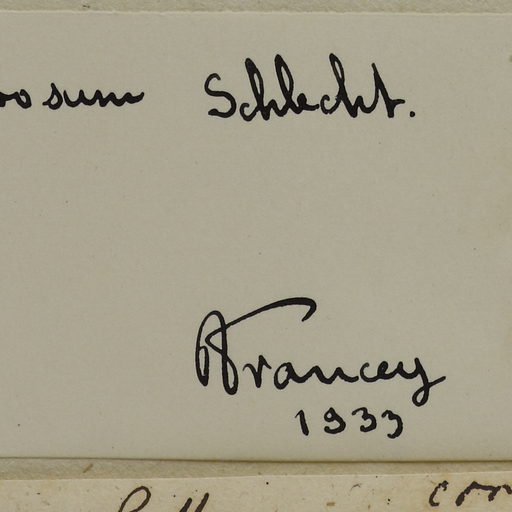 osum Schlecht.
Francey
1933